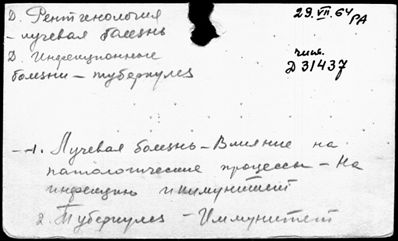 Д. Рентгенология
- лучевая болезнь
Д. Инфекционные
болезни - туберкулез
29.VII.64
РА
Д 31437
1. Лучевая болезнь - Влияние на
патологические процессы - На
инфекцию и иммунитет
2. Туберкулез - Иммунитет